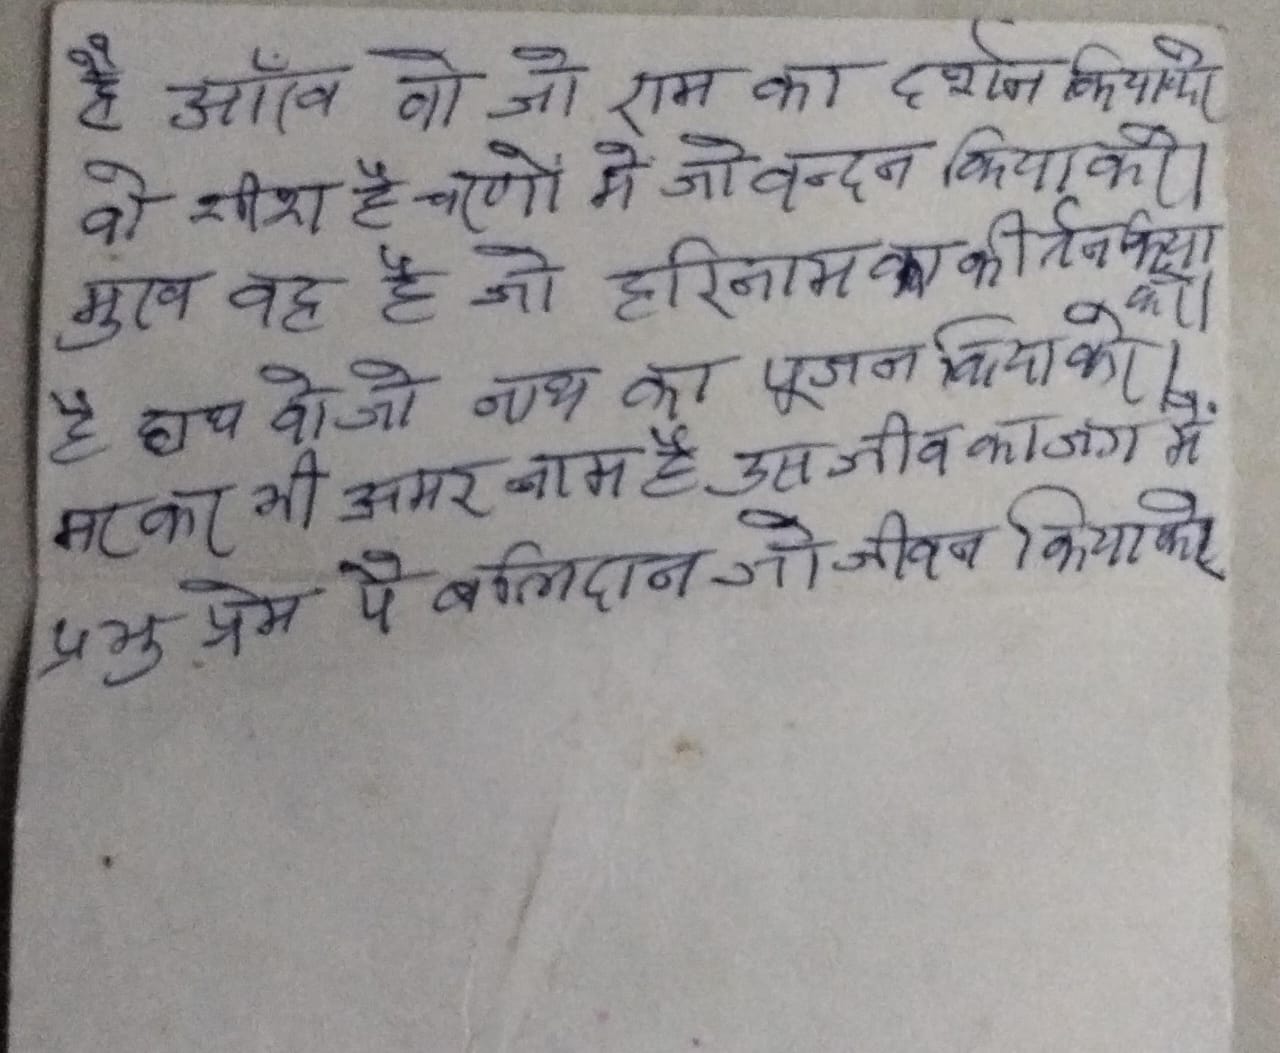 है आँख वो जो राम का दर्शन किया करे
वो शीश है चरणों में जो वन्दन किया करे।
मुख वह है जो हरिनाम का कीर्तन किया
करे।
है हाथ वो जो नाथ का पूजन किया करे।
मरकर भी अमर नाम है उस जीव का जग में
प्रभु प्रेम पै बलिदान जो जीवन किया करे